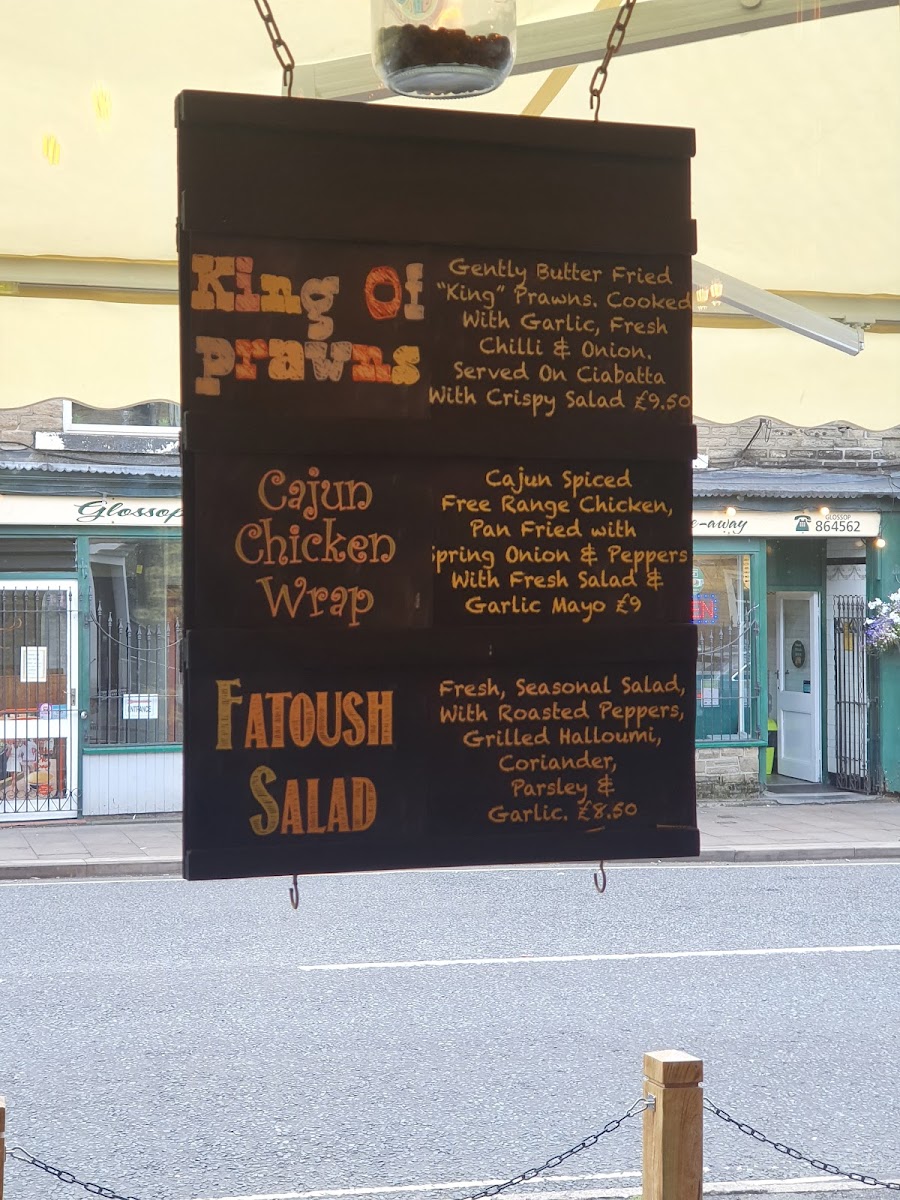 King Of
Prawns
Gently Butter Fried
"King" Prawns. Cooked
With Garlic, Fresh
Chilli & Onion.
Served On Ciabatta
With Crispy Salad £9.50
Cajun
Chicken
Wrap
Cajun Spiced
Free Range Chicken,
Pan Fried with
pring Onion & Peppers
With Fresh Salad &
Garlic Mayo £9
FATOUSH
SALAD
Fresh, Seasonal Salad,
With Roasted Peppers,
Grilled Halloumi,
Coriander,
Parsley &
Garlic. £8.50
Glossop
e-away
GLOSSOP
864562
EN
ENTRANCE